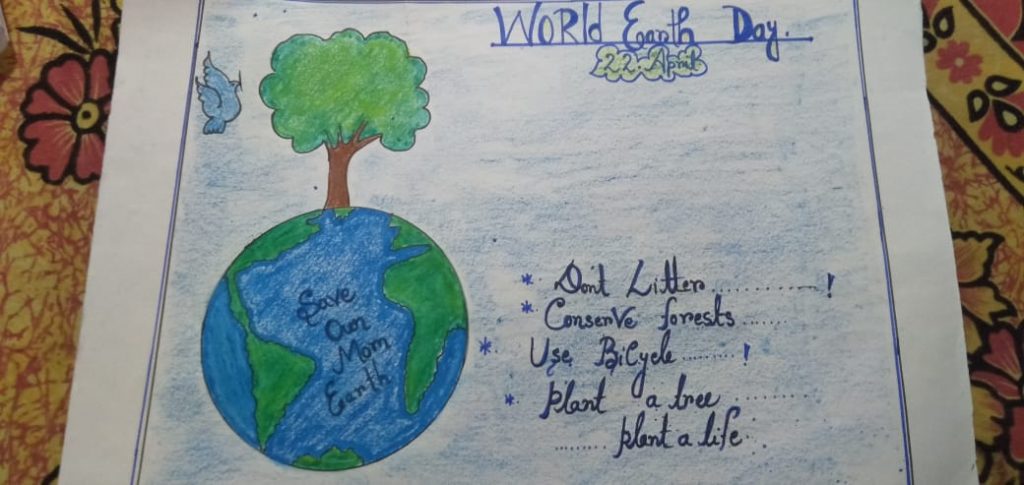 World Earth Day.
22 April
Save
Our
Mom
Earth
* Don't Litter ............... !
* Conserve forests ......
* Use BiCycle ........ !
* plant a tree ..........
........ plant a life..